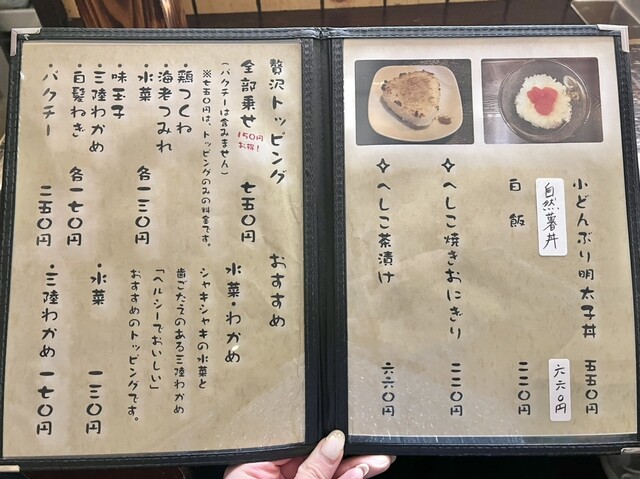 小どんぶり明太子丼 五五〇円
自然薯丼 六六〇円
白飯 二二〇円
✧へしこ焼きおにぎり 二二〇円
✧へしこ茶漬け 六六〇円
贅沢トッピング
全部乗せ 150円お得！ 七五〇円
（パクチーは含みません）
※七五〇円は、トッピングのみの料金です。
・鶏つくね
・海老つみれ
・水菜 各一三〇円
・味玉子
・三陸わかめ
・白髪ねぎ 各一七〇円
・パクチー 二五〇円
おすすめ
水菜・わかめ
シャキシャキの水菜と
歯ごたえのある三陸わかめ
「ヘルシーでおいしい」
おすすめのトッピングです。
・水菜 一三〇円
・三陸わかめ 一七〇円